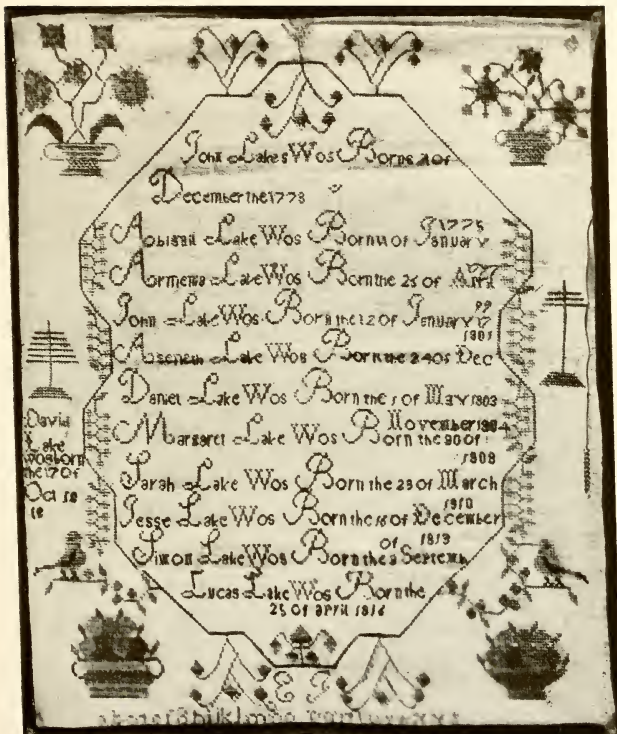 John Lakes Wos Born 21 of
December the 1773
1775
Abigail Lake Wos Born 11 of January
Armenia Lake Wos Born the 25 of
99
John Lake Wos Born the 12 of January 17
1801
Aseneth Lake Wos Born the 24 of Dec
Daniel Lake Wos Born the 1 of May 1803
November 1804
Margaret Lake Wos Born the 30 of
1808
Sarah Lake Wos Born the 23 of March
1810
Jesse Lake Wos Born the 18 of December
of 1813
Simon Lake Wos Born the 2 Septemb
Lucas Lake Wos Born the
25 of april 1816
David
Lake
wosborn
the 17 of
Oct 18
18
E